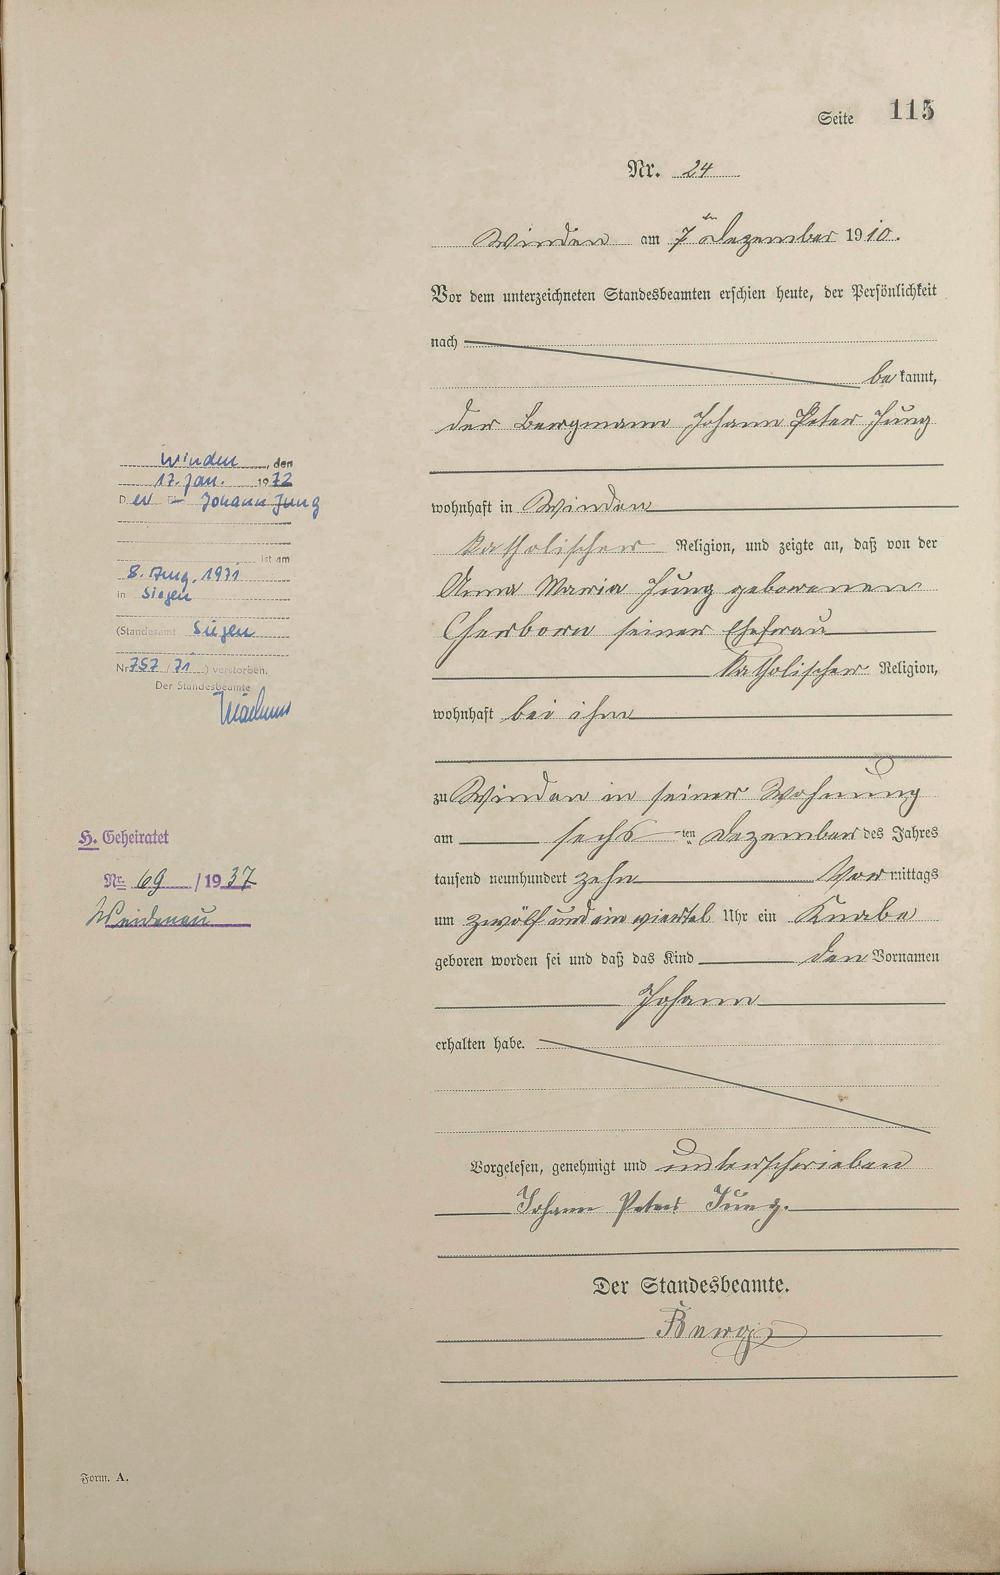 Seite 115
Nr. 24
Winden am 7ten Dezember 1910.
Vor dem unterzeichneten Standesbeamten erschien heute, der Persönlichkeit
nach
bekannt,
der Bergmann Johann Peter Jung
wohnhaft in Winden
katholischer Religion, und zeigte an, daß von der
Anna Maria Jung geborenen
Gherborn seiner Ehefrau
katholischer Religion,
wohnhaft bei ihm
zu Winden in seiner Wohnung
am sechsten Dezember des Jahres
tausend neunhundert zehn Vormittags
um zwölf und ein viertel Uhr ein Knabe
geboren worden sei und daß das Kind den Vornamen
Johann
erhalten habe.
Vorgelesen, genehmigt und unterschrieben
Johann Peter Jung.
Der Standesbeamte.
Winden, den
17. Jan. 1972
Der Johann Jung
ist am
8. Aug. 1971
in Siegen
(Standesamt Siegen
Nr 757 / 71 ) verstorben.
Der Standesbeamte
H. Geheiratet
Nr. 69 / 1937
Weidenau
Form. A.